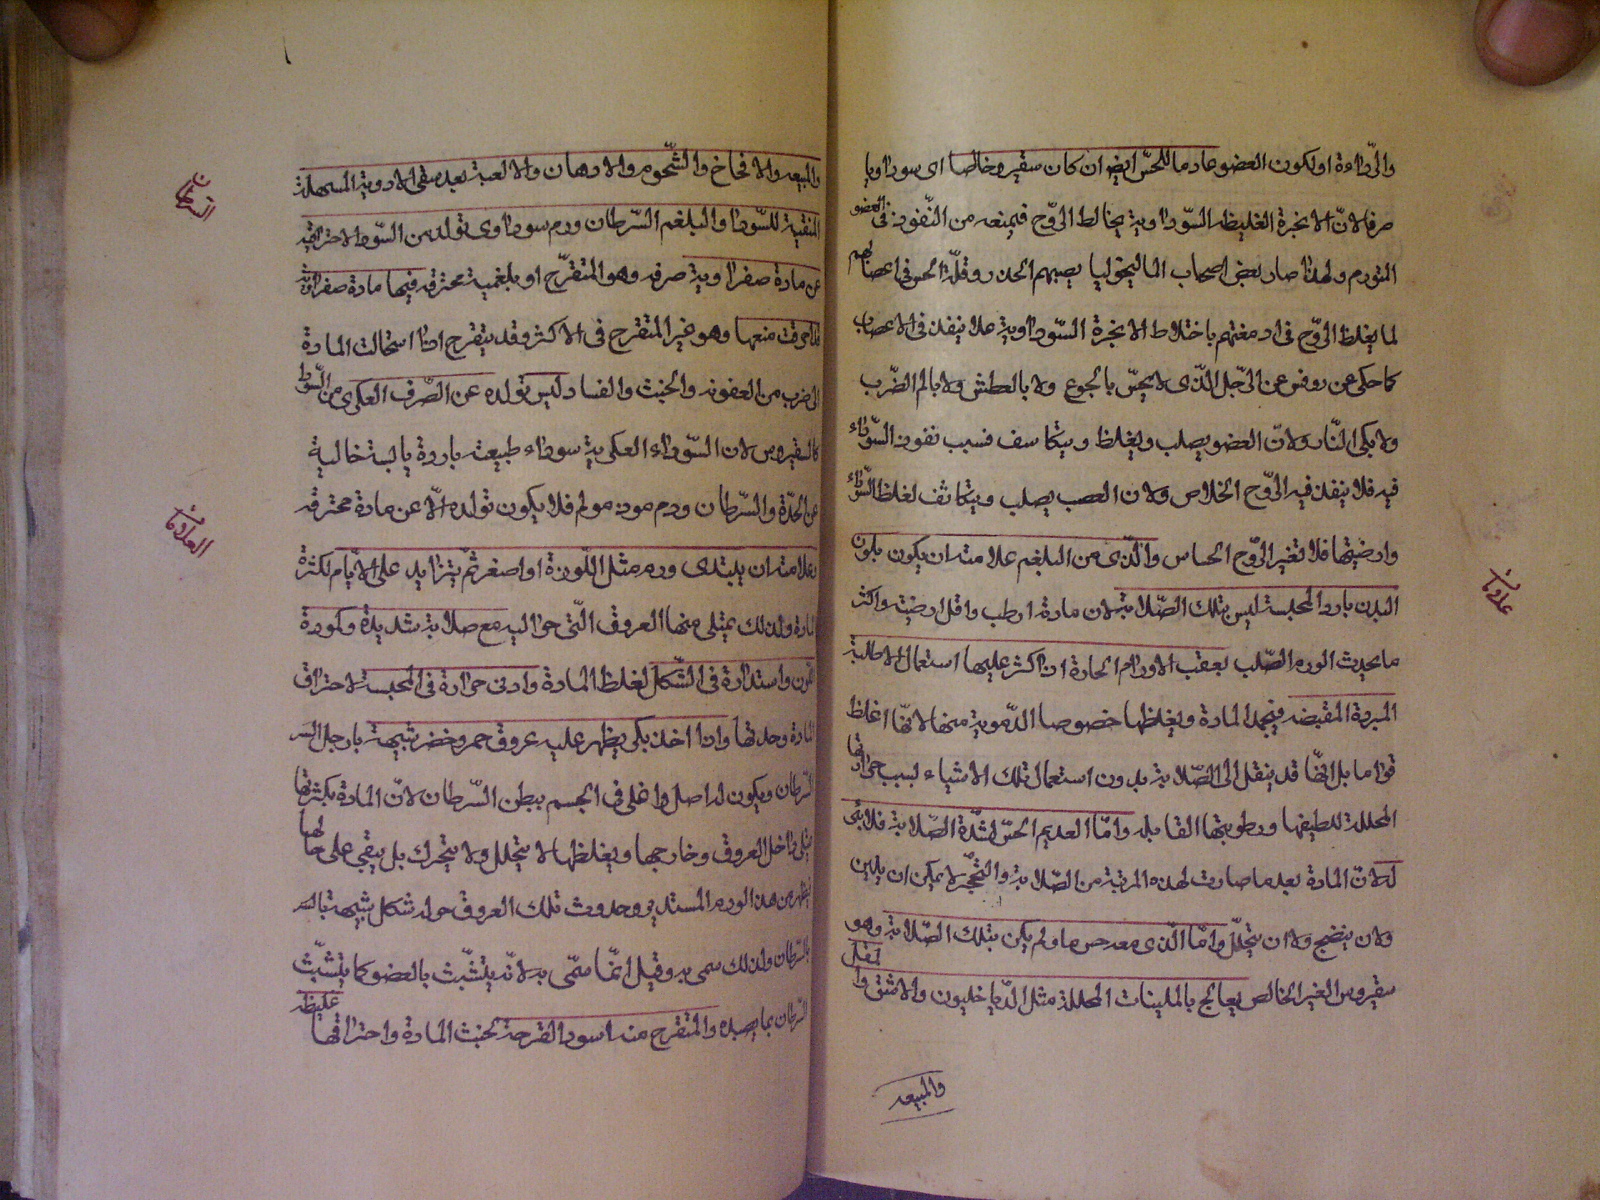 والرداءة او لكون العضو عادما للحس ايضا ان كان سقيروخالصا اى سوداويا
صرفا لان الابخرة الغليظة السوداوية يخالط الروح فيمنعه من النفوذ فى العضو
المتورم ولهذا صار بعض اصحاب الماليخوليا يصيبهم الخدر وقلة الحس فى اعضائهم
لما يغلظ الروح فى ادمغتهم باختلاط الابخرة السوداوية فلا ينفذ فى الاعصاب
كما حكى عن روفس عن الرجل الذى لا يحس بالجوع ولا بالعطش ولا بالم الضرب
ولا بكى النار ولان العضو يصلب ويغلظ ويتكاسف فسبب نفوذ السوداء
فيه فلا ينفذ فيه الروح الخلاص ولان العصب يصلب ويتكاثف لغلظ السوداء
وارضيتها فلا تغير الروح الحساس والذى من البلغم علامته ان يكون بلون
البدن بارد المجسة ليس بتلك الصلابة لان مادته ارطب واقل ارضية واكثر
ما يحدث الورم الصلب بعقب الاورام الحارة اذا كثر عليها استعمال الاطلية
المبردة المقبضة فيجمد المادة ويغلظها خصوصا الدموية منها لانها اغلظ
قواما بل انها قد ينقل الى الصلابة بدون استعمال تلك الاشياء بسبب حرارتها
المحللة للطيفها ورطوبتها القابلة واما العديم الحس لشدة الصلابة فلا برء
له لان المادة بعد ما صارت لهذه المرتبة من الصلابة والتحجر لا يمكن ان يلين
ولان ينضج ولا ان يتحلل واما الذى معه حس ما ولم يكن بتلك الصلابة وهو
سقيروس الغير الخالص يعالج بالملينات المحللة مثل الدياخليون والاشق والمقل
والميعه
والميعه والامخاخ والشحوم والادهان والالعبة بعد سقى الادوية المسهلة
المنقية للسودا والبلغم السرطان ورم سوداوى تولده من السودا الاحتراقية
عن مادة صفراوية صرفه وهو المتقرح او بلغمية محترقه فيها مادة صفراوية
احترقت منعها وهو غير المتقرح فى الاكثر وقد يتقرح اذا استحالت المادة
الى ضرب من العفونه والخبث والفساد ليس تولده عن الصرف العكرى من السوداء
كالسقيروس لان السوداء العكرية سوداء طبيعته باردة يابسة خالية
عن الحدة والسرطان ورم موذ مولم فلا يكون تولده الا عن مادة محترقه
وعلامته ان يبتدى ورمه مثل اللوزة او اصغر ثم يتزايد على الايام لكثرة
المادة ولذلك يمتلى منها العروق التى حواليه مع صلابة شديدة وكمودة
اللون واستدارة فى الشكل لغلظ المادة وادنى حرارة فى المجسة لاحتراق
المادة وحدتها واذا اخذ يكبر يظهر عليه عروق حمر وخضر شبيهة بارجل السر
السرطان ويكون له اصل داخل فى الجسم ببطن السرطان لان المادة بكثرتها
يملى داخل العروق وخارجها وبغلظها لا يتحلل ولا يتحرك بل يبقى على حالها
فيظهر من هذا الورم المستدير وحدوث تلك العروق حوله شكل شبيهة بالسر
بالسرطان ولذلك سمى به وقيل انما سمى به لانه يتشبث بالعضو كما يتشبث
السرطان بما يصيده والمتقرح منه اسود القرحة لخبث المادة واحتراقها غليظه
السرطان
العلامات
علامات